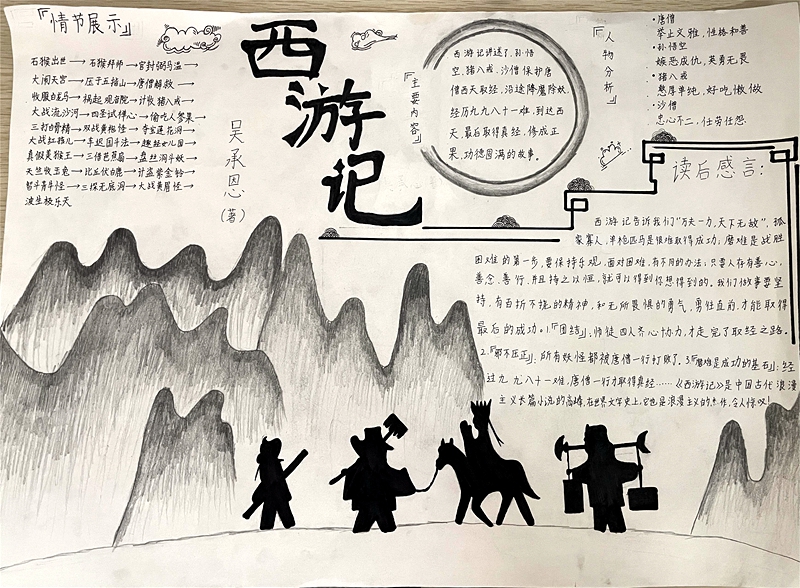 『情节展示』
石猴出世→石猴拜师→官封弼马温→
大闹天宫→压于五指山→唐僧解救→
收服白龙马→祸起观音院→计收猪八戒→
大战流沙河→四圣试禅心→偷吃人参果→
三打白骨精→双战黄袍怪→夺宝莲花洞→
大战红孩儿→车迟国斗法→趣经女儿国→
真假美猴王→三借芭蕉扇→盘丝洞斗妖→
天竺收玉兔→比丘伏白鹿→计盗紫金铃→
智斗青牛怪→三探无底洞→大战黄眉怪→
波生极乐天
西游记
吴承恩(著)
『主要内容』
西游记讲述了,孙悟
空,猪八戒,沙僧保护唐
僧西天取经,沿途降魔除妖,
经历九九八十一难,到达西
天,最后取得真经,修成正
果,功德圆满的故事。
『人物分析』
·唐僧
举止文雅,性格和善
·孙悟空
嫉恶成仇,英勇无畏
·猪八戒
憨厚单纯,好吃懒做
·沙僧
忠心不二,任劳任怨.
读后感言:
西游记告诉我们"万夫一力,天下无敌",孤
家寡人,单枪匹马是很难取得成功;磨难是战胜
困难的第一步,要保持乐观,面对困难,有不同的办法;只要人存有善心,
善念、善行,并且持之以恒,就可以得到你想得到的。我们做事要坚
持,有百折不挠的精神,和无所畏惧的勇气,勇往直前,才能取得
最后的成功。1.『团结』:师徒四人齐心协力,才走完了取经之路。
2.『邪不压正』:所有妖怪都被唐僧一行打败了。3.『磨难是成功的基石』:经
过九九八十一难,唐僧一行才取得真经……《西游记》是中国古代浪漫
主义长篇小说的高峰,在世界文学史上,它也是浪漫主义的杰作,令人惊叹!